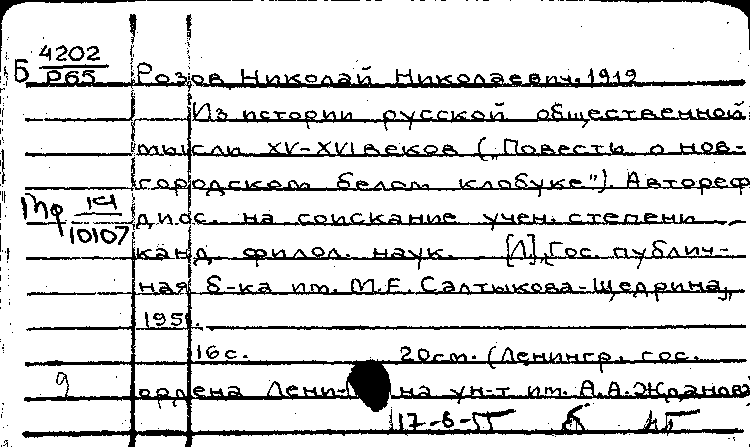 Б 4202
Р65
Розов, Николай Николаевич, 1912
Из истории русской общественной
мысли XV-XVI веков ("Повесть о нов-
городском белом клобуке"). Автореф
дисс. на соискание учен. степени
Тф 10107
канд филол. наук. [Л], Гос. публич-
ная б-ка им. М.Е. Салтыкова-Щедрина,
195 .
16 с. 20 см. (Ленингр. гос.
9 ордена Лени- на ун-т им. А.А.Жданова)
17-8-55